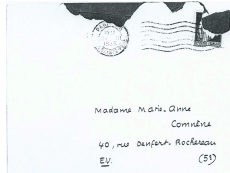 Madame Marie-Anne
Comnène
40, rue Denfert-Rochereau
E.V. (5E)